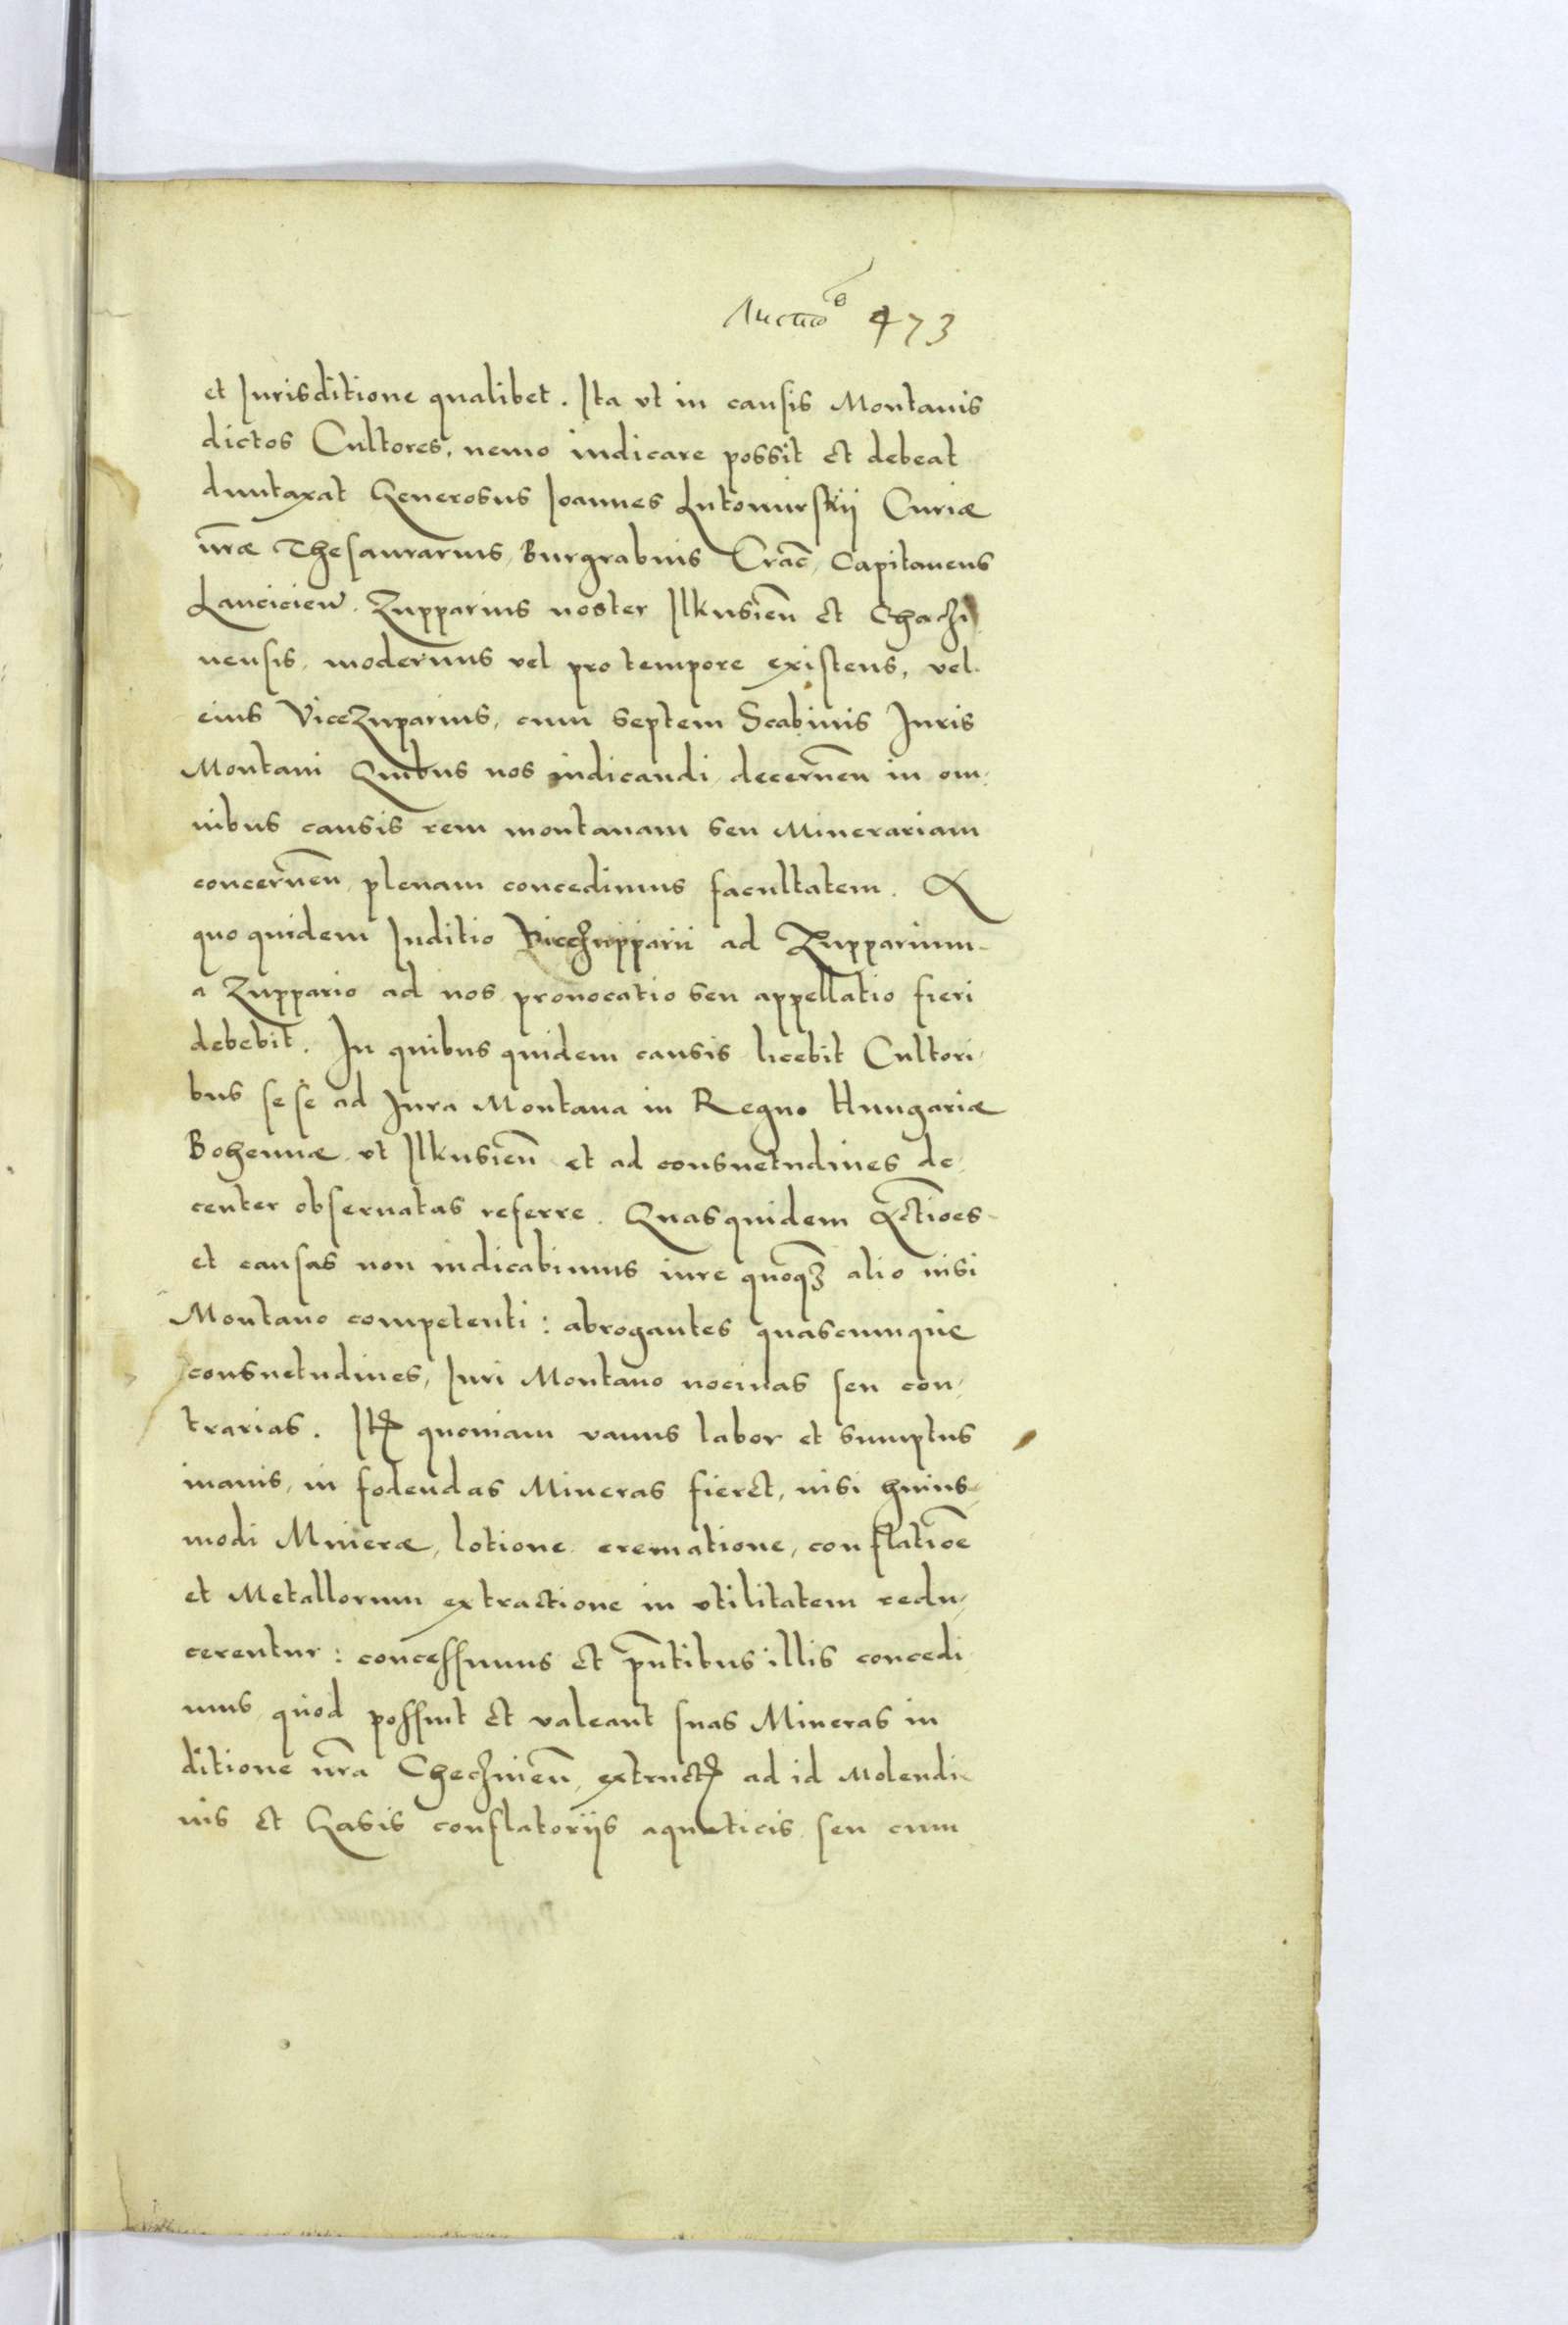 473
et Jurisditione qualibet. Ita vt in causis Montanis
dictos Cultores, nemo iudicare possit et debeat
duntaxat Generosus Joannes Lutomirskij Curiæ
nr̃æ Thesaurarius, Burgrabius Crac̃, Capitaneus
Lancicien̄. Zupparius noster Ilkusien̄ et Chaczi
nensis, modernus vel pro tempore existens, vel
eius Vicezuparius, cum septem Scabinis Juris
Montani Quibus nos iudicandi, decernen̄ in om,
nibus causis rem montanam seu Minerariam
concernen̄, plenam concedimus facultatem. A
quo quidem Juditio Vicezupparii ad Zupparium
a Zuppario ad nos prouocatio seu appellatio fieri
debebit. In quibus quidem causis licebit Cultori,
bus sese ad Jura Montana in Regno Hungariæ
Bohemiæ, vt Ilkusien̄ et ad consuetudines de,
center obseruatas referre. Quasquidem Actiões
et causas non iudicabimus iure quoq3 alio nisi
Montano competenti: abrogantes quascumque
consuetudines, Juri Montano nociuas seu con,
trarias. Itẽ quoniam vanus labor et sumptus
inanis, in fodendas Mineras fieret, nisi huius,
modi Mineræ, lotione crematione, conflatiõe
et Metallorum extractione in vtilitatem redu,
cerentur: concessimus et pn̄tibus illis concedi
mus, quod possint et valeant suas Mineras in
ditione nr̃a Checzinen̄, extructẽ ad id Molendi
nis et Casis conflatorijs aquaticis, seu cum